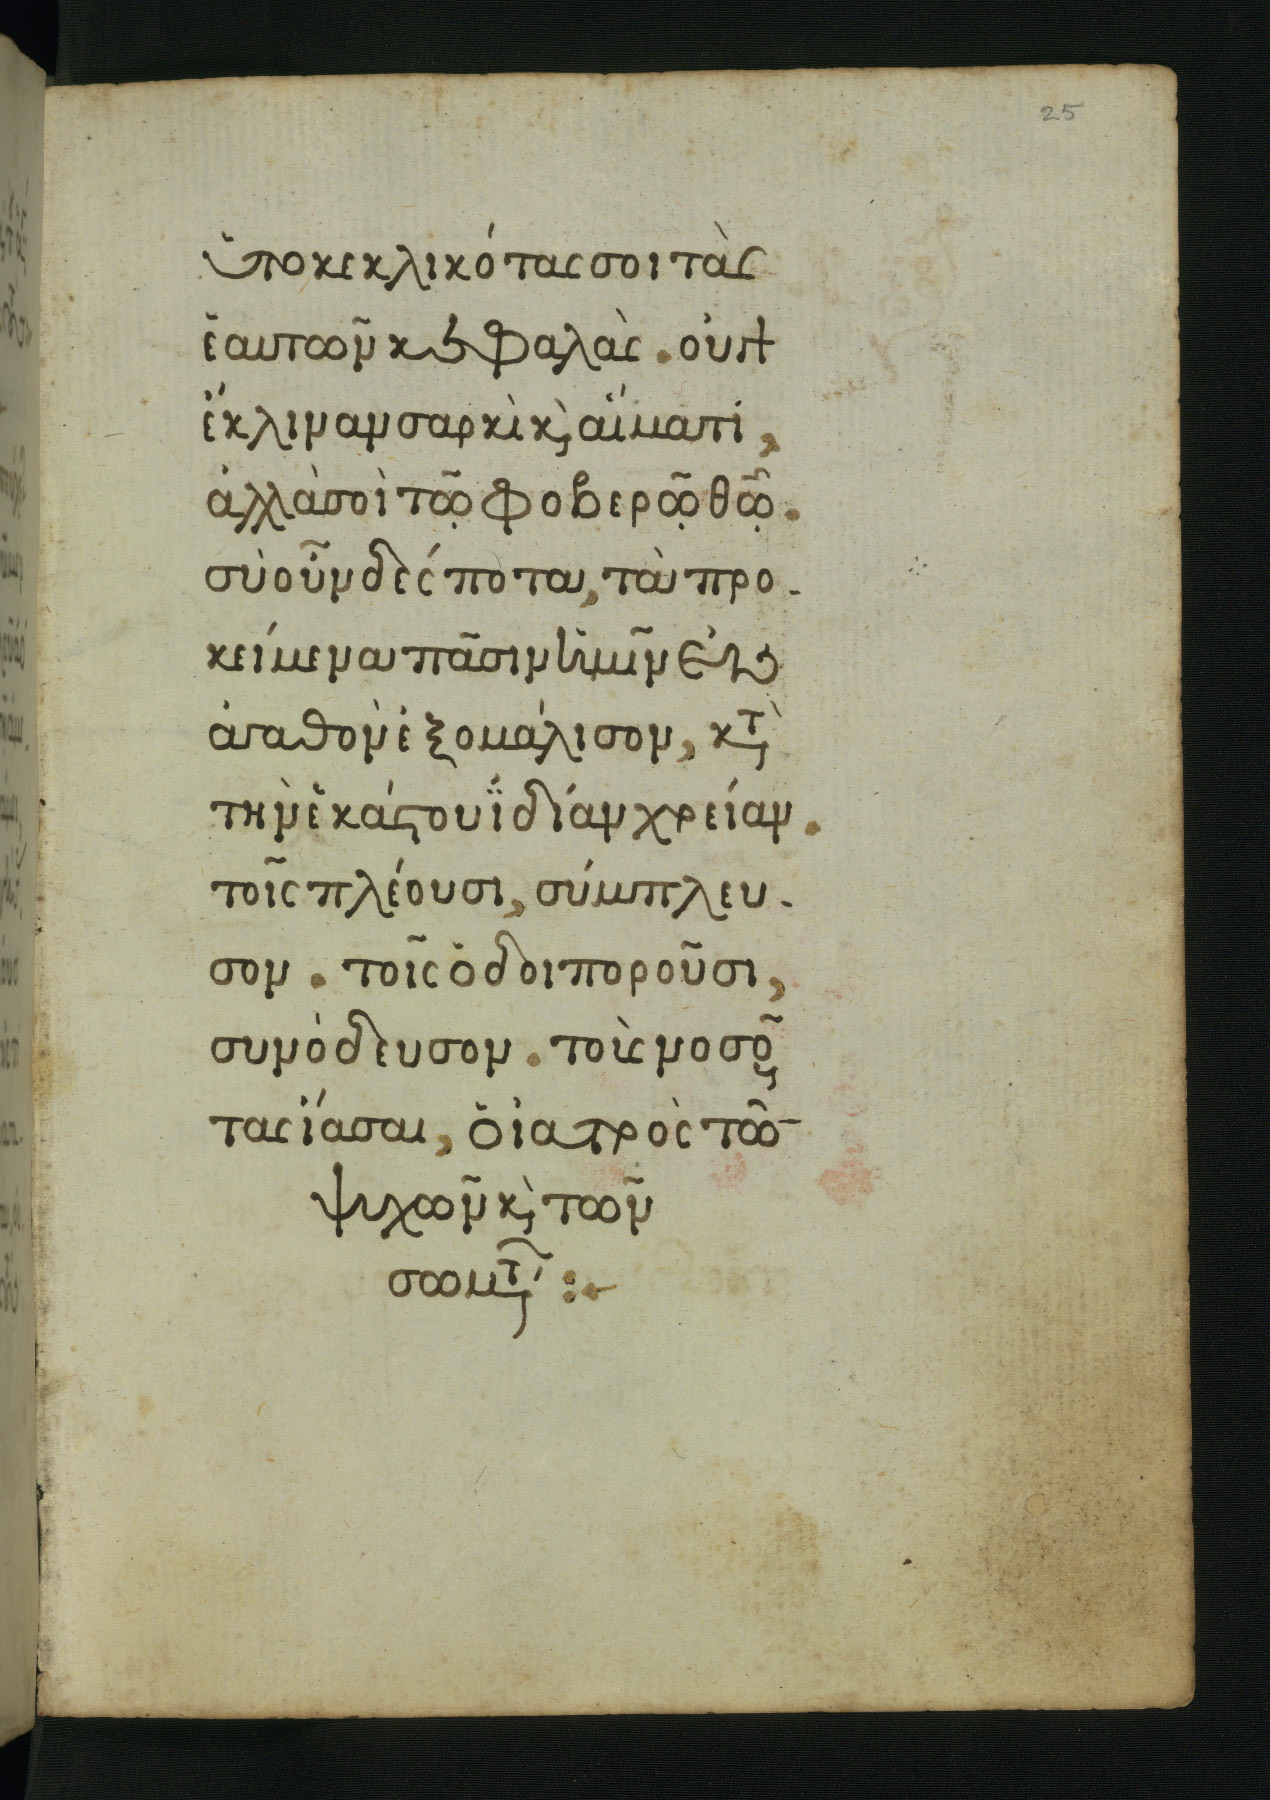 25
ὑποκεκλικότας σοι τὰς
ἑαυτῶν κεφαλὰς. οὐ γὰρ
ἔκλιναν σαρκὶ κ̀ αἵματι,
ἀλλὰ σοὶ τῶ̣ φοβερῶ̣ θῶ̣.
σὺ οὖν δέσποτα, τὰ προ-
κείμενα πᾶσιν ἡμῖν εἰς
ἀγαθὸν ἐξομάλισον, κτ̀
τὴν ἑκάστου ἰδίαν χρείαν.
τοῖς πλέουσι, σύμπλευ-
σον. τοῖς ὁδοιποροῦσι,
συνόδευσον. τοὺς νοσοῦν
τας ἴασαι, ὁ ἰατρὸς τῶν
ψυχῶν κ̀ τῶν
σωμτ :-